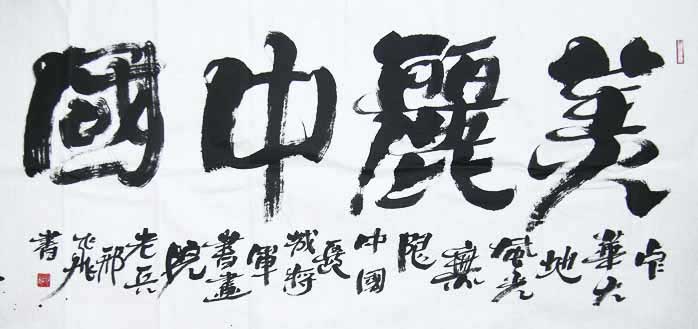 美麗中國
中華大地風光無限中國長城將軍書畫院老兵邢飛書